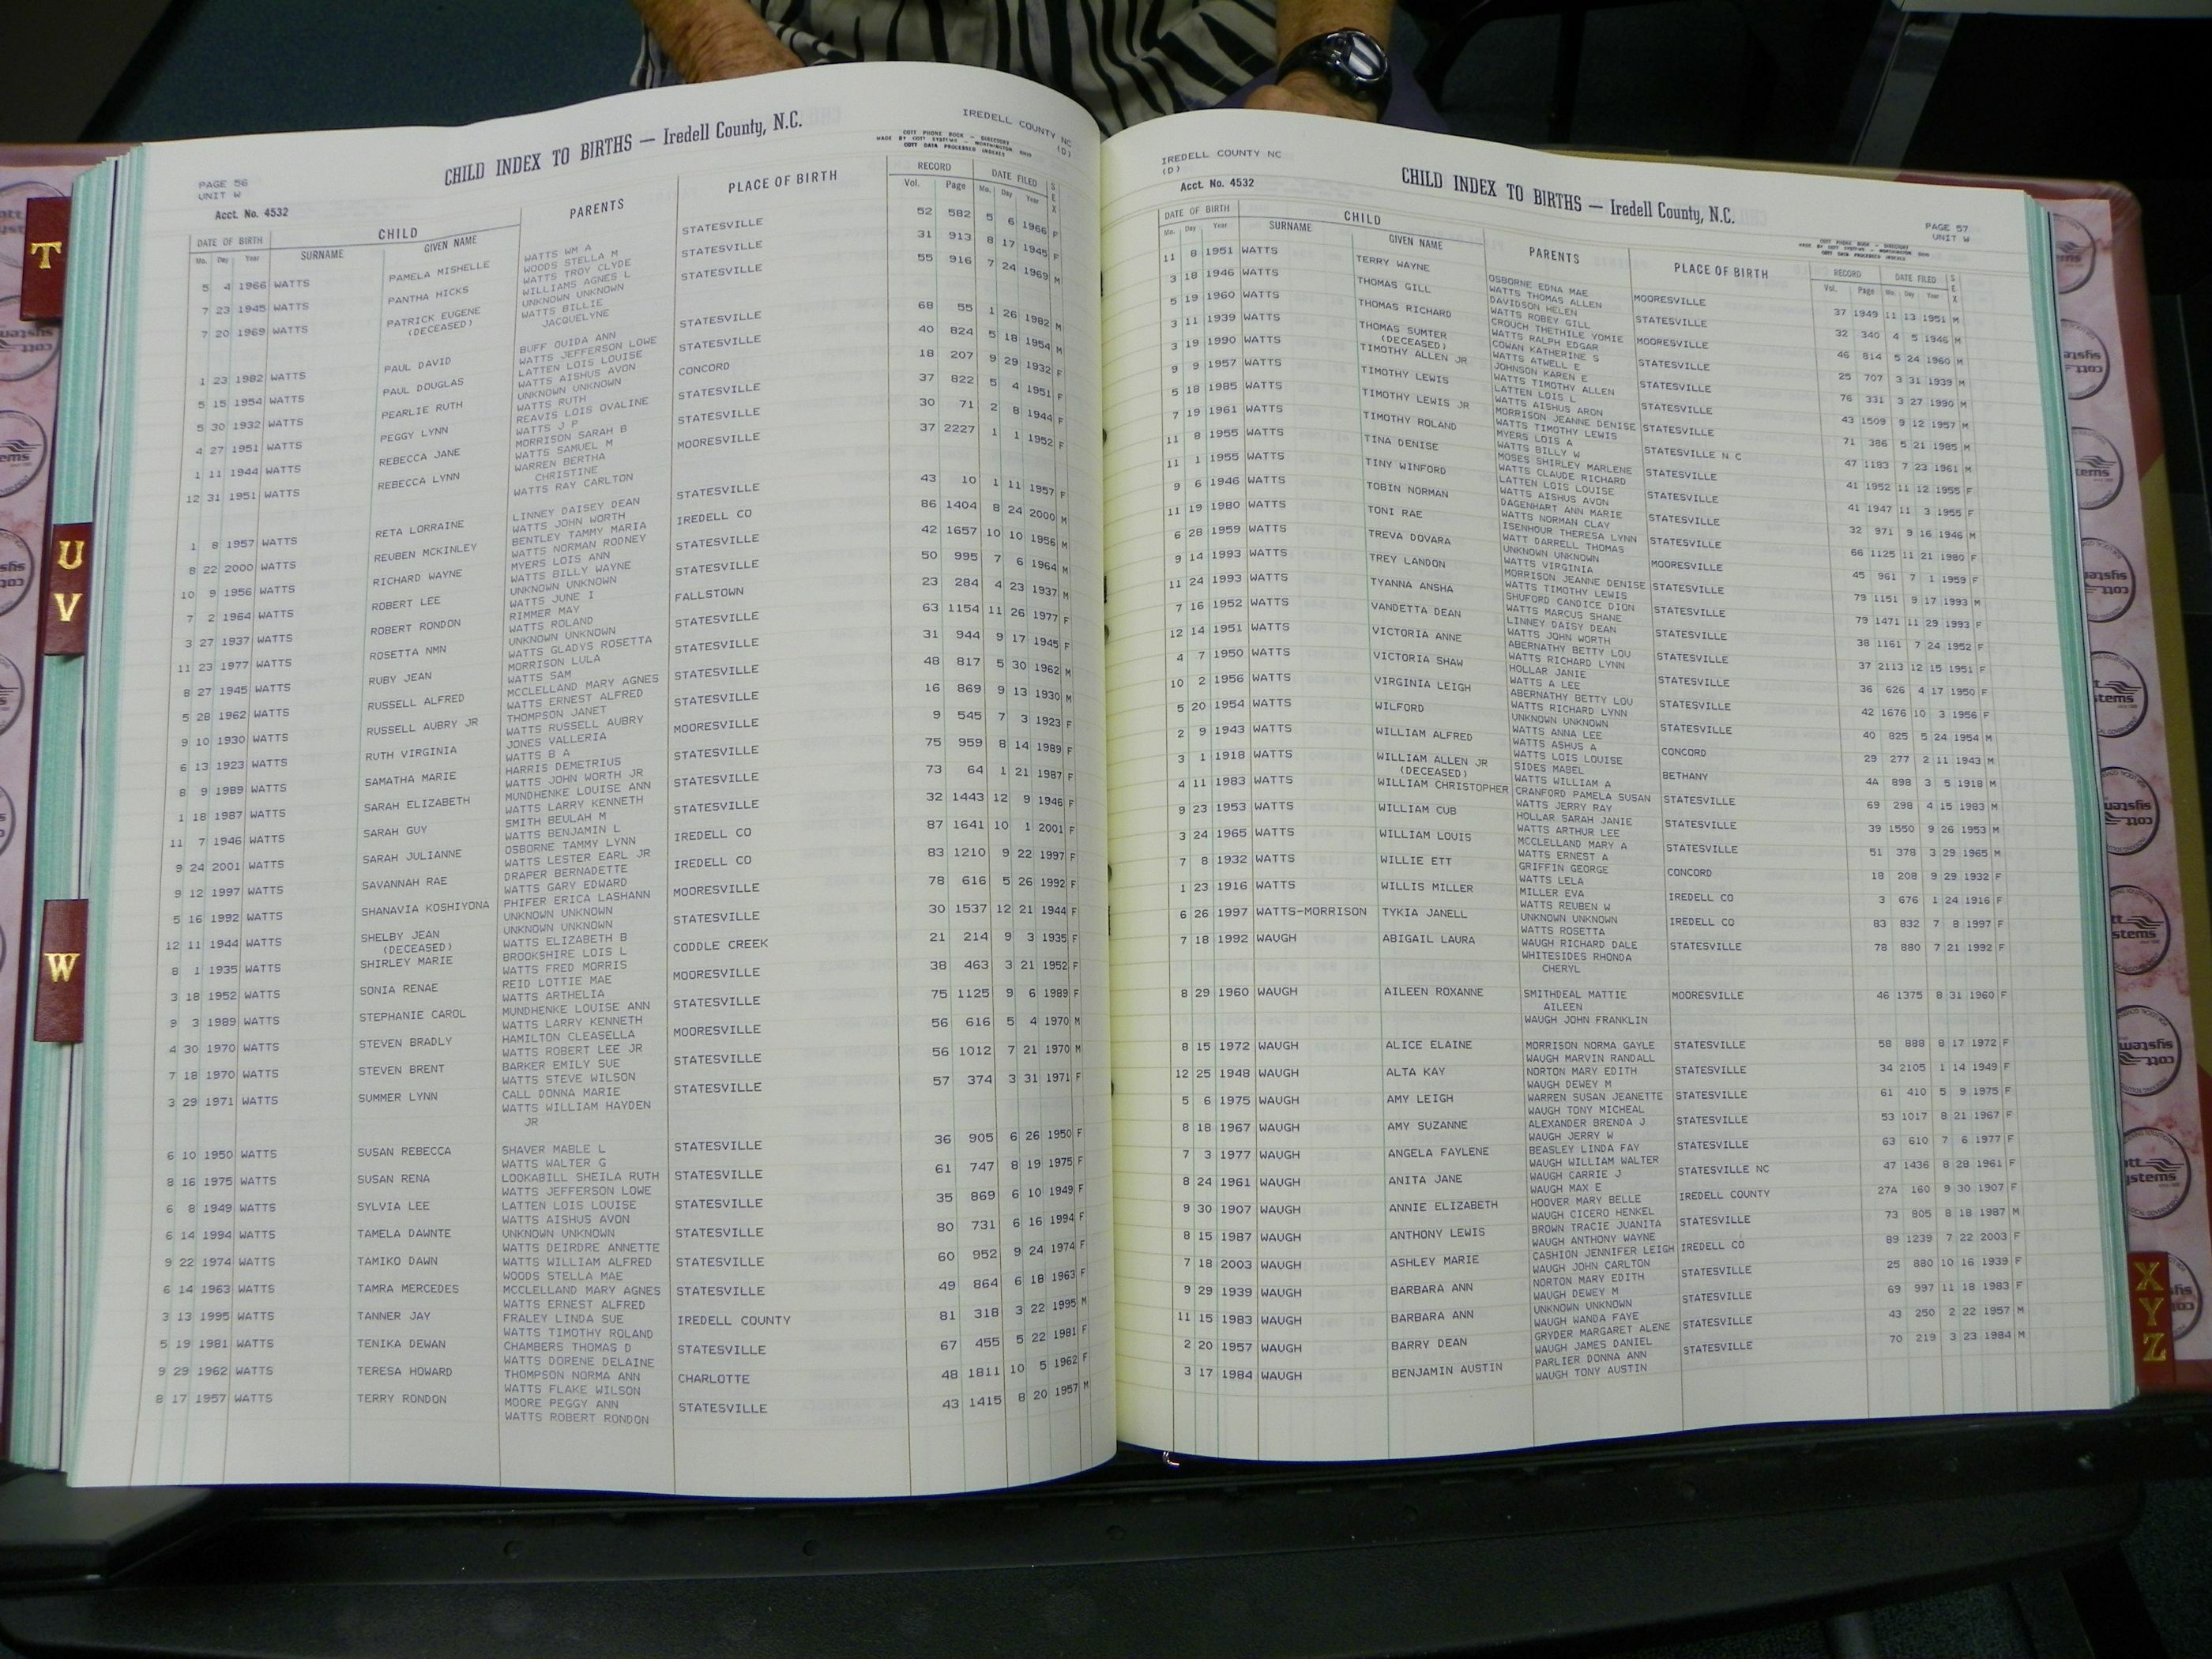 IREDELL COUNTY NC
(D)
CHILD INDEX TO BIRTHS — Iredell County, N.C.
COTT PHONE BOOK - DIRECTORY
MADE BY COTT SYSTEMS - WORTHINGTON OHIO
COTT DATA PROCESSED INDEXES
PAGE 56
UNIT W
Acct. No. 4532
DATE OF BIRTH CHILD PARENTS PLACE OF BIRTH RECORD DATE FILED SEX
Mo. Day Year SURNAME GIVEN NAME Vol. Page Mo. Day Year
5 4 1966 WATTS PAMELA MISHELLE WATTS WM A STATESVILLE 52 582 5 6 1966 F
WOODS STELLA M
7 23 1945 WATTS PANTHA HICKS WATTS TROY CLYDE STATESVILLE 31 913 8 17 1945 F
WILLIAMS AGNES L
7 20 1969 WATTS PATRICK EUGENE UNKNOWN UNKNOWN STATESVILLE 55 916 7 24 1969 M
(DECEASED) WATTS BILLIE
JACQUELYNE
1 23 1982 WATTS PAUL DAVID BUFF OUIDA ANN STATESVILLE 68 55 1 26 1982 M
WATTS JEFFERSON LOWE
5 15 1954 WATTS PAUL DOUGLAS LATTEN LOIS LOUISE STATESVILLE 40 824 5 18 1954 M
WATTS AISHUS AVON
5 30 1932 WATTS PEARLIE RUTH UNKNOWN UNKNOWN CONCORD 18 207 9 29 1932 F
WATTS RUTH
4 27 1951 WATTS PEGGY LYNN REAVIS LOIS OVALINE STATESVILLE 37 822 5 4 1951 F
WATTS J P
1 11 1944 WATTS REBECCA JANE MORRISON SARAH B STATESVILLE 30 71 2 8 1944 F
WATTS SAMUEL M
12 31 1951 WATTS REBECCA LYNN WARREN BERTHA MOORESVILLE 37 2227 1 1 1952 F
CHRISTINE
WATTS RAY CARLTON
1 8 1957 WATTS RETA LORRAINE LINNEY DAISEY DEAN STATESVILLE 43 10 1 11 1957 F
WATTS JOHN WORTH
8 22 2000 WATTS REUBEN MCKINLEY BENTLEY TAMMY MARIA IREDELL CO 86 1404 8 24 2000 M
WATTS NORMAN RODNEY
10 9 1956 WATTS RICHARD WAYNE MYERS LOIS ANN STATESVILLE 42 1657 10 10 1956 M
WATTS BILLY WAYNE
7 2 1964 WATTS ROBERT LEE UNKNOWN UNKNOWN STATESVILLE 50 995 7 6 1964 M
WATTS JUNE I
3 27 1937 WATTS ROBERT RONDON RIMMER MAY FALLSTOWN 23 284 4 23 1937 M
WATTS ROLAND
11 23 1977 WATTS ROSETTA NMN UNKNOWN UNKNOWN STATESVILLE 63 1154 11 26 1977 F
WATTS GLADYS ROSETTA
8 27 1945 WATTS RUBY JEAN MORRISON LULA STATESVILLE 31 944 9 17 1945 F
WATTS SAM
5 28 1962 WATTS RUSSELL ALFRED MCCLELLAND MARY AGNES STATESVILLE 48 817 5 30 1962 M
WATTS ERNEST ALFRED
9 10 1930 WATTS RUSSELL AUBRY JR THOMPSON JANET STATESVILLE 16 869 9 13 1930 M
WATTS RUSSELL AUBRY
6 13 1923 WATTS RUTH VIRGINIA JONES VALLERIA MOORESVILLE 9 545 7 3 1923 F
WATTS B A
8 9 1989 WATTS SAMATHA MARIE HARRIS DEMETRIUS STATESVILLE 75 959 8 14 1989 F
WATTS JOHN WORTH JR
1 18 1987 WATTS SARAH ELIZABETH MUNDHENKE LOUISE ANN STATESVILLE 73 64 1 21 1987 F
WATTS LARRY KENNETH
11 7 1946 WATTS SARAH GUY SMITH BEULAH M STATESVILLE 32 1443 12 9 1946 F
WATTS BENJAMIN L
9 24 2001 WATTS SARAH JULIANNE OSBORNE TAMMY LYNN IREDELL CO 87 1641 10 1 2001 F
WATTS LESTER EARL JR
9 12 1997 WATTS SAVANNAH RAE DRAPER BERNADETTE IREDELL CO 83 1210 9 22 1997 F
WATTS GARY EDWARD
5 16 1992 WATTS SHANAVIA KOSHIYONA PHIFER ERICA LASHANN MOORESVILLE 78 616 5 26 1992 F
UNKNOWN UNKNOWN
12 11 1944 WATTS SHELBY JEAN UNKNOWN UNKNOWN STATESVILLE 30 1537 12 21 1944 F
(DECEASED) WATTS ELIZABETH B
8 1 1935 WATTS SHIRLEY MARIE BROOKSHIRE LOIS L CODDLE CREEK 21 214 9 3 1935 F
WATTS FRED MORRIS
3 18 1952 WATTS SONIA RENAE REID LOTTIE MAE MOORESVILLE 38 463 3 21 1952 F
WATTS ARTHELIA
9 3 1989 WATTS STEPHANIE CAROL MUNDHENKE LOUISE ANN STATESVILLE 75 1125 9 6 1989 F
WATTS LARRY KENNETH
4 30 1970 WATTS STEVEN BRADLY HAMILTON CLEASELLA MOORESVILLE 56 616 5 4 1970 M
WATTS ROBERT LEE JR
7 18 1970 WATTS STEVEN BRENT BARKER EMILY SUE STATESVILLE 56 1012 7 21 1970 M
WATTS STEVE WILSON
3 29 1971 WATTS SUMMER LYNN CALL DONNA MARIE STATESVILLE 57 374 3 31 1971 F
WATTS WILLIAM HAYDEN
JR
6 10 1950 WATTS SUSAN REBECCA SHAVER MABLE L STATESVILLE 36 905 6 26 1950 F
WATTS WALTER G
8 16 1975 WATTS SUSAN RENA LOOKABILL SHEILA RUTH STATESVILLE 61 747 8 19 1975 F
WATTS JEFFERSON LOWE
6 8 1949 WATTS SYLVIA LEE LATTEN LOIS LOUISE STATESVILLE 35 869 6 10 1949 F
WATTS AISHUS AVON
6 14 1994 WATTS TAMELA DAWNTE UNKNOWN UNKNOWN STATESVILLE 80 731 6 16 1994 F
WATTS DEIRDRE ANNETTE
9 22 1974 WATTS TAMIKO DAWN WATTS WILLIAM ALFRED STATESVILLE 60 952 9 24 1974 F
WOODS STELLA MAE
6 14 1963 WATTS TAMRA MERCEDES MCCLELLAND MARY AGNES STATESVILLE 49 864 6 18 1963 F
WATTS ERNEST ALFRED
3 13 1995 WATTS TANNER JAY FRALEY LINDA SUE IREDELL COUNTY 81 318 3 22 1995 M
WATTS TIMOTHY ROLAND
5 19 1981 WATTS TENIKA DEWAN CHAMBERS THOMAS D STATESVILLE 67 455 5 22 1981 F
WATTS DORENE DELAINE
9 29 1962 WATTS TERESA HOWARD THOMPSON NORMA ANN CHARLOTTE 48 1811 10 5 1962 F
WATTS FLAKE WILSON
8 17 1957 WATTS TERRY RONDON MOORE PEGGY ANN STATESVILLE 43 1415 8 20 1957 M
WATTS ROBERT RONDON
IREDELL COUNTY NC
(D)
Acct. No. 4532
CHILD INDEX TO BIRTHS — Iredell County, N.C.
PAGE 57
UNIT W
COTT PHONE BOOK - DIRECTORY
MADE BY COTT SYSTEMS - WORTHINGTON OHIO
COTT DATA PROCESSED INDEXES
DATE OF BIRTH CHILD PARENTS PLACE OF BIRTH RECORD DATE FILED SEX
Mo. Day Year SURNAME GIVEN NAME Vol. Page Mo. Day Year
11 8 1951 WATTS TERRY WAYNE OSBORNE EDNA MAE MOORESVILLE 37 1949 11 13 1951 M
WATTS THOMAS ALLEN
3 18 1946 WATTS THOMAS GILL DAVIDSON HELEN STATESVILLE 32 340 4 5 1946 M
WATTS ROBEY GILL
5 19 1960 WATTS THOMAS RICHARD CROUCH THETHILE YOMIE MOORESVILLE 46 814 5 24 1960 M
WATTS RALPH EDGAR
3 11 1939 WATTS THOMAS SUMTER COWAN KATHERINE S STATESVILLE 25 707 3 31 1939 M
(DECEASED) WATTS ATWELL E
3 19 1990 WATTS TIMOTHY ALLEN JR JOHNSON KAREN E STATESVILLE 76 331 3 27 1990 M
WATTS TIMOTHY ALLEN
9 9 1957 WATTS TIMOTHY LEWIS LATTEN LOIS L STATESVILLE 43 1509 9 12 1957 M
WATTS AISHUS ARON
5 18 1985 WATTS TIMOTHY LEWIS JR MORRISON JEANNE DENISE STATESVILLE 71 386 5 21 1985 M
WATTS TIMOTHY LEWIS
7 19 1961 WATTS TIMOTHY ROLAND MYERS LOIS A STATESVILLE N C 47 1183 7 23 1961 M
WATTS BILLY W
11 8 1955 WATTS TINA DENISE MOSES SHIRLEY MARLENE STATESVILLE 41 1952 11 12 1955 F
WATTS CLAUDE RICHARD
11 1 1955 WATTS TINY WINFORD LATTEN LOIS LOUISE STATESVILLE 41 1947 11 3 1955 F
WATTS AISHUS AVON
9 6 1946 WATTS TOBIN NORMAN DAGENHART ANN MARIE STATESVILLE 32 971 9 16 1946 M
WATTS NORMAN CLAY
11 19 1980 WATTS TONI RAE ISENHOUR THERESA LYNN STATESVILLE 66 1125 11 21 1980 F
WATT DARRELL THOMAS
6 28 1959 WATTS TREVA DOVARA UNKNOWN UNKNOWN MOORESVILLE 45 961 7 1 1959 F
WATTS VIRGINIA
9 14 1993 WATTS TREY LANDON MORRISON JEANNE DENISE STATESVILLE 79 1151 9 17 1993 M
WATTS TIMOTHY LEWIS
11 24 1993 WATTS TYANNA ANSHA SHUFORD CANDICE DION STATESVILLE 79 1471 11 29 1993 F
WATTS MARCUS SHANE
7 16 1952 WATTS VANDETTA DEAN LINNEY DAISY DEAN STATESVILLE 38 1161 7 24 1952 F
WATTS JOHN WORTH
12 14 1951 WATTS VICTORIA ANNE ABERNATHY BETTY LOU STATESVILLE 37 2113 12 15 1951 F
WATTS RICHARD LYNN
4 7 1950 WATTS VICTORIA SHAW HOLLAR JANIE STATESVILLE 36 626 4 17 1950 F
WATTS A LEE
10 2 1956 WATTS VIRGINIA LEIGH ABERNATHY BETTY LOU STATESVILLE 42 1676 10 3 1956 F
WATTS RICHARD LYNN
5 20 1954 WATTS WILFORD UNKNOWN UNKNOWN STATESVILLE 40 825 5 24 1954 M
WATTS ANNA LEE
2 9 1943 WATTS WILLIAM ALFRED WATTS ASHUS A CONCORD 29 277 2 11 1943 M
WATTS LOIS LOUISE
3 1 1918 WATTS WILLIAM ALLEN JR SIDES MABEL BETHANY 4A 898 3 5 1918 M
(DECEASED) WATTS WILLIAM A
4 11 1983 WATTS WILLIAM CHRISTOPHER CRANFORD PAMELA SUSAN STATESVILLE 69 298 4 15 1983 M
WATTS JERRY RAY
9 23 1953 WATTS WILLIAM CUB HOLLAR SARAH JANIE STATESVILLE 39 1550 9 26 1953 M
WATTS ARTHUR LEE
3 24 1965 WATTS WILLIAM LOUIS MCCLELLAND MARY A STATESVILLE 51 378 3 29 1965 M
WATTS ERNEST A
7 8 1932 WATTS WILLIE ETT GRIFFIN GEORGE CONCORD 18 208 9 29 1932 F
WATTS LELA
1 23 1916 WATTS WILLIS MILLER MILLER EVA IREDELL CO 3 676 1 24 1916 F
WATTS REUBEN W
6 26 1997 WATTS-MORRISON TYKIA JANELL UNKNOWN UNKNOWN IREDELL CO 83 832 7 8 1997 F
WATTS ROSETTA
7 18 1992 WAUGH ABIGAIL LAURA WAUGH RICHARD DALE STATESVILLE 78 880 7 21 1992 F
WHITESIDES RHONDA
CHERYL
8 29 1960 WAUGH AILEEN ROXANNE SMITHDEAL MATTIE MOORESVILLE 46 1375 8 31 1960 F
AILEEN
WAUGH JOHN FRANKLIN
8 15 1972 WAUGH ALICE ELAINE MORRISON NORMA GAYLE STATESVILLE 58 888 8 17 1972 F
WAUGH MARVIN RANDALL
12 25 1948 WAUGH ALTA KAY NORTON MARY EDITH STATESVILLE 34 2105 1 14 1949 F
WAUGH DEWEY M
5 6 1975 WAUGH AMY LEIGH WARREN SUSAN JEANETTE STATESVILLE 61 410 5 9 1975 F
WAUGH TONY MICHEAL
8 18 1967 WAUGH AMY SUZANNE ALEXANDER BRENDA J STATESVILLE 53 1017 8 21 1967 F
WAUGH JERRY W
7 3 1977 WAUGH ANGELA FAYLENE BEASLEY LINDA FAY STATESVILLE 63 610 7 6 1977 F
WAUGH WILLIAM WALTER
8 24 1961 WAUGH ANITA JANE WAUGH CARRIE J STATESVILLE NC 47 1436 8 28 1961 F
WAUGH MAX E
9 30 1907 WAUGH ANNIE ELIZABETH HOOVER MARY BELLE IREDELL COUNTY 27A 160 9 30 1907 F
WAUGH CICERO HENKEL
8 15 1987 WAUGH ANTHONY LEWIS BROWN TRACIE JUANITA STATESVILLE 73 805 8 18 1987 M
WAUGH ANTHONY WAYNE
7 18 2003 WAUGH ASHLEY MARIE CASHION JENNIFER LEIGH IREDELL CO 89 1239 7 22 2003 F
WAUGH JOHN CARLTON
9 29 1939 WAUGH BARBARA ANN NORTON MARY EDITH STATESVILLE 25 880 10 16 1939 F
WAUGH DEWEY M
11 15 1983 WAUGH BARBARA ANN UNKNOWN UNKNOWN STATESVILLE 69 997 11 18 1983 F
WAUGH WANDA FAYE
2 20 1957 WAUGH BARRY DEAN GRYDER MARGARET ALENE STATESVILLE 43 250 2 22 1957 M
WAUGH JAMES DANIEL
3 17 1984 WAUGH BENJAMIN AUSTIN PARLIER DONNA ANN STATESVILLE 70 219 3 23 1984 M
WAUGH TONY AUSTIN
T
U
V
W
X
Y
Z